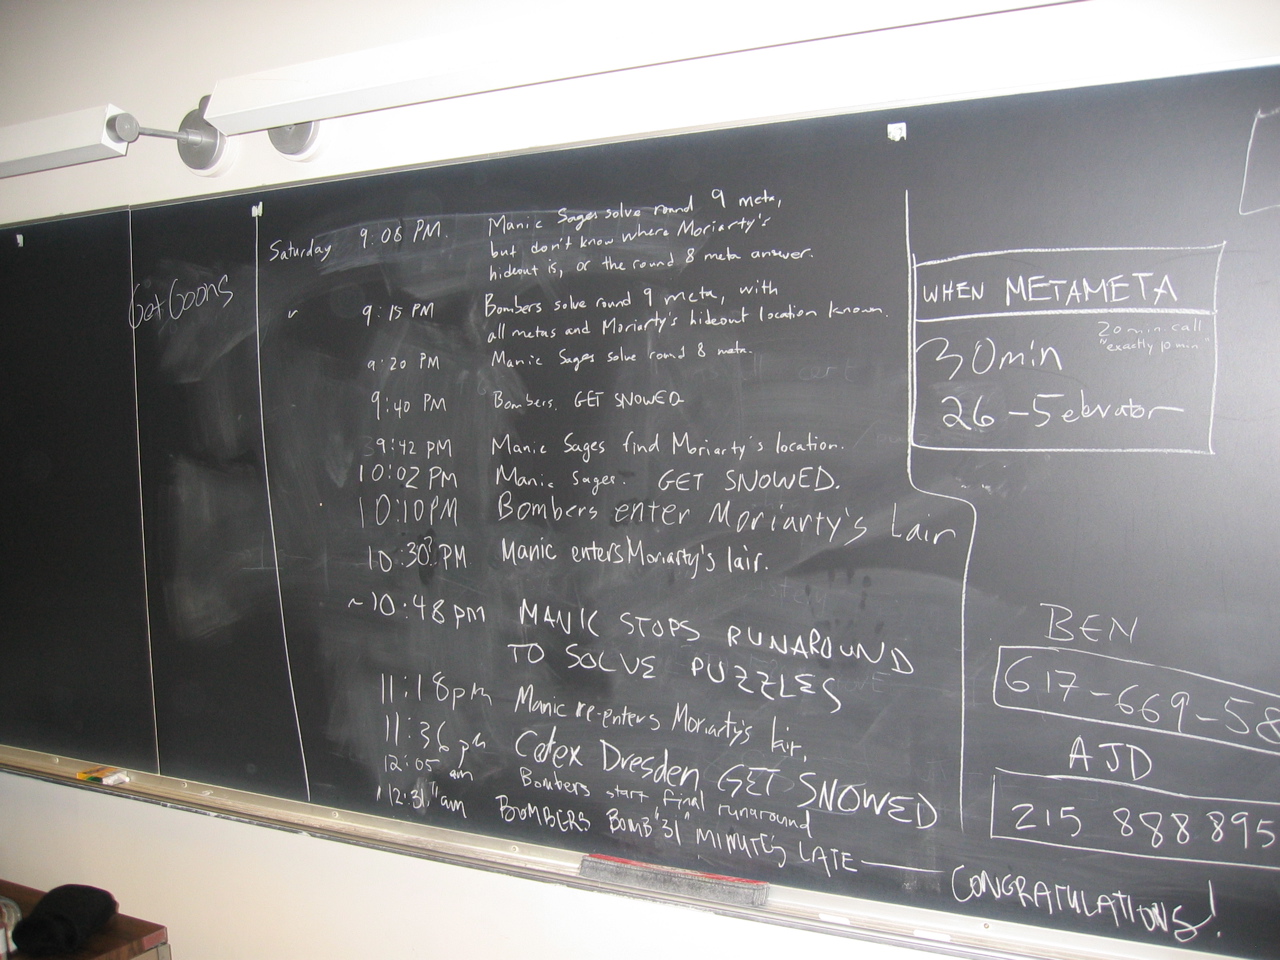 Get Goons
Saturday 9:08 PM. Manic Sages solve round 9 meta,
but don't know where Moriarty's
hideout is, or the round 8 meta answer.
9:15 PM Bombers solve round 9 meta, with
all metas and Moriarty's hideout location known.
9:20 PM Manic Sages solve round 8 meta.
9:40 PM Bombers. GET SNOWED
9:42 PM Manic Sages find Moriarty's location.
10:02 PM Manic Sages. GET SNOWED.
10:10PM Bombers enter Moriarty's Lair
10:30? PM Manic enters Moriarty's lair.
~10:48pm MANIC STOPS RUNAROUND
TO SOLVE PUZZLES
11:18pm Manic re-enters Moriarty's lair.
11:36 pm Codex Dresden GET SNOWED
12:05 am Bombers start final runaround
12:"31" am BOMBERS BOMB "31" MINUTES LATE — CONGRATULATIONS!
WHEN METAMETA
30min
20 min. call
"exactly 10 min"
26-5 elevator
BEN
617-669-58
AJD
215 888 895